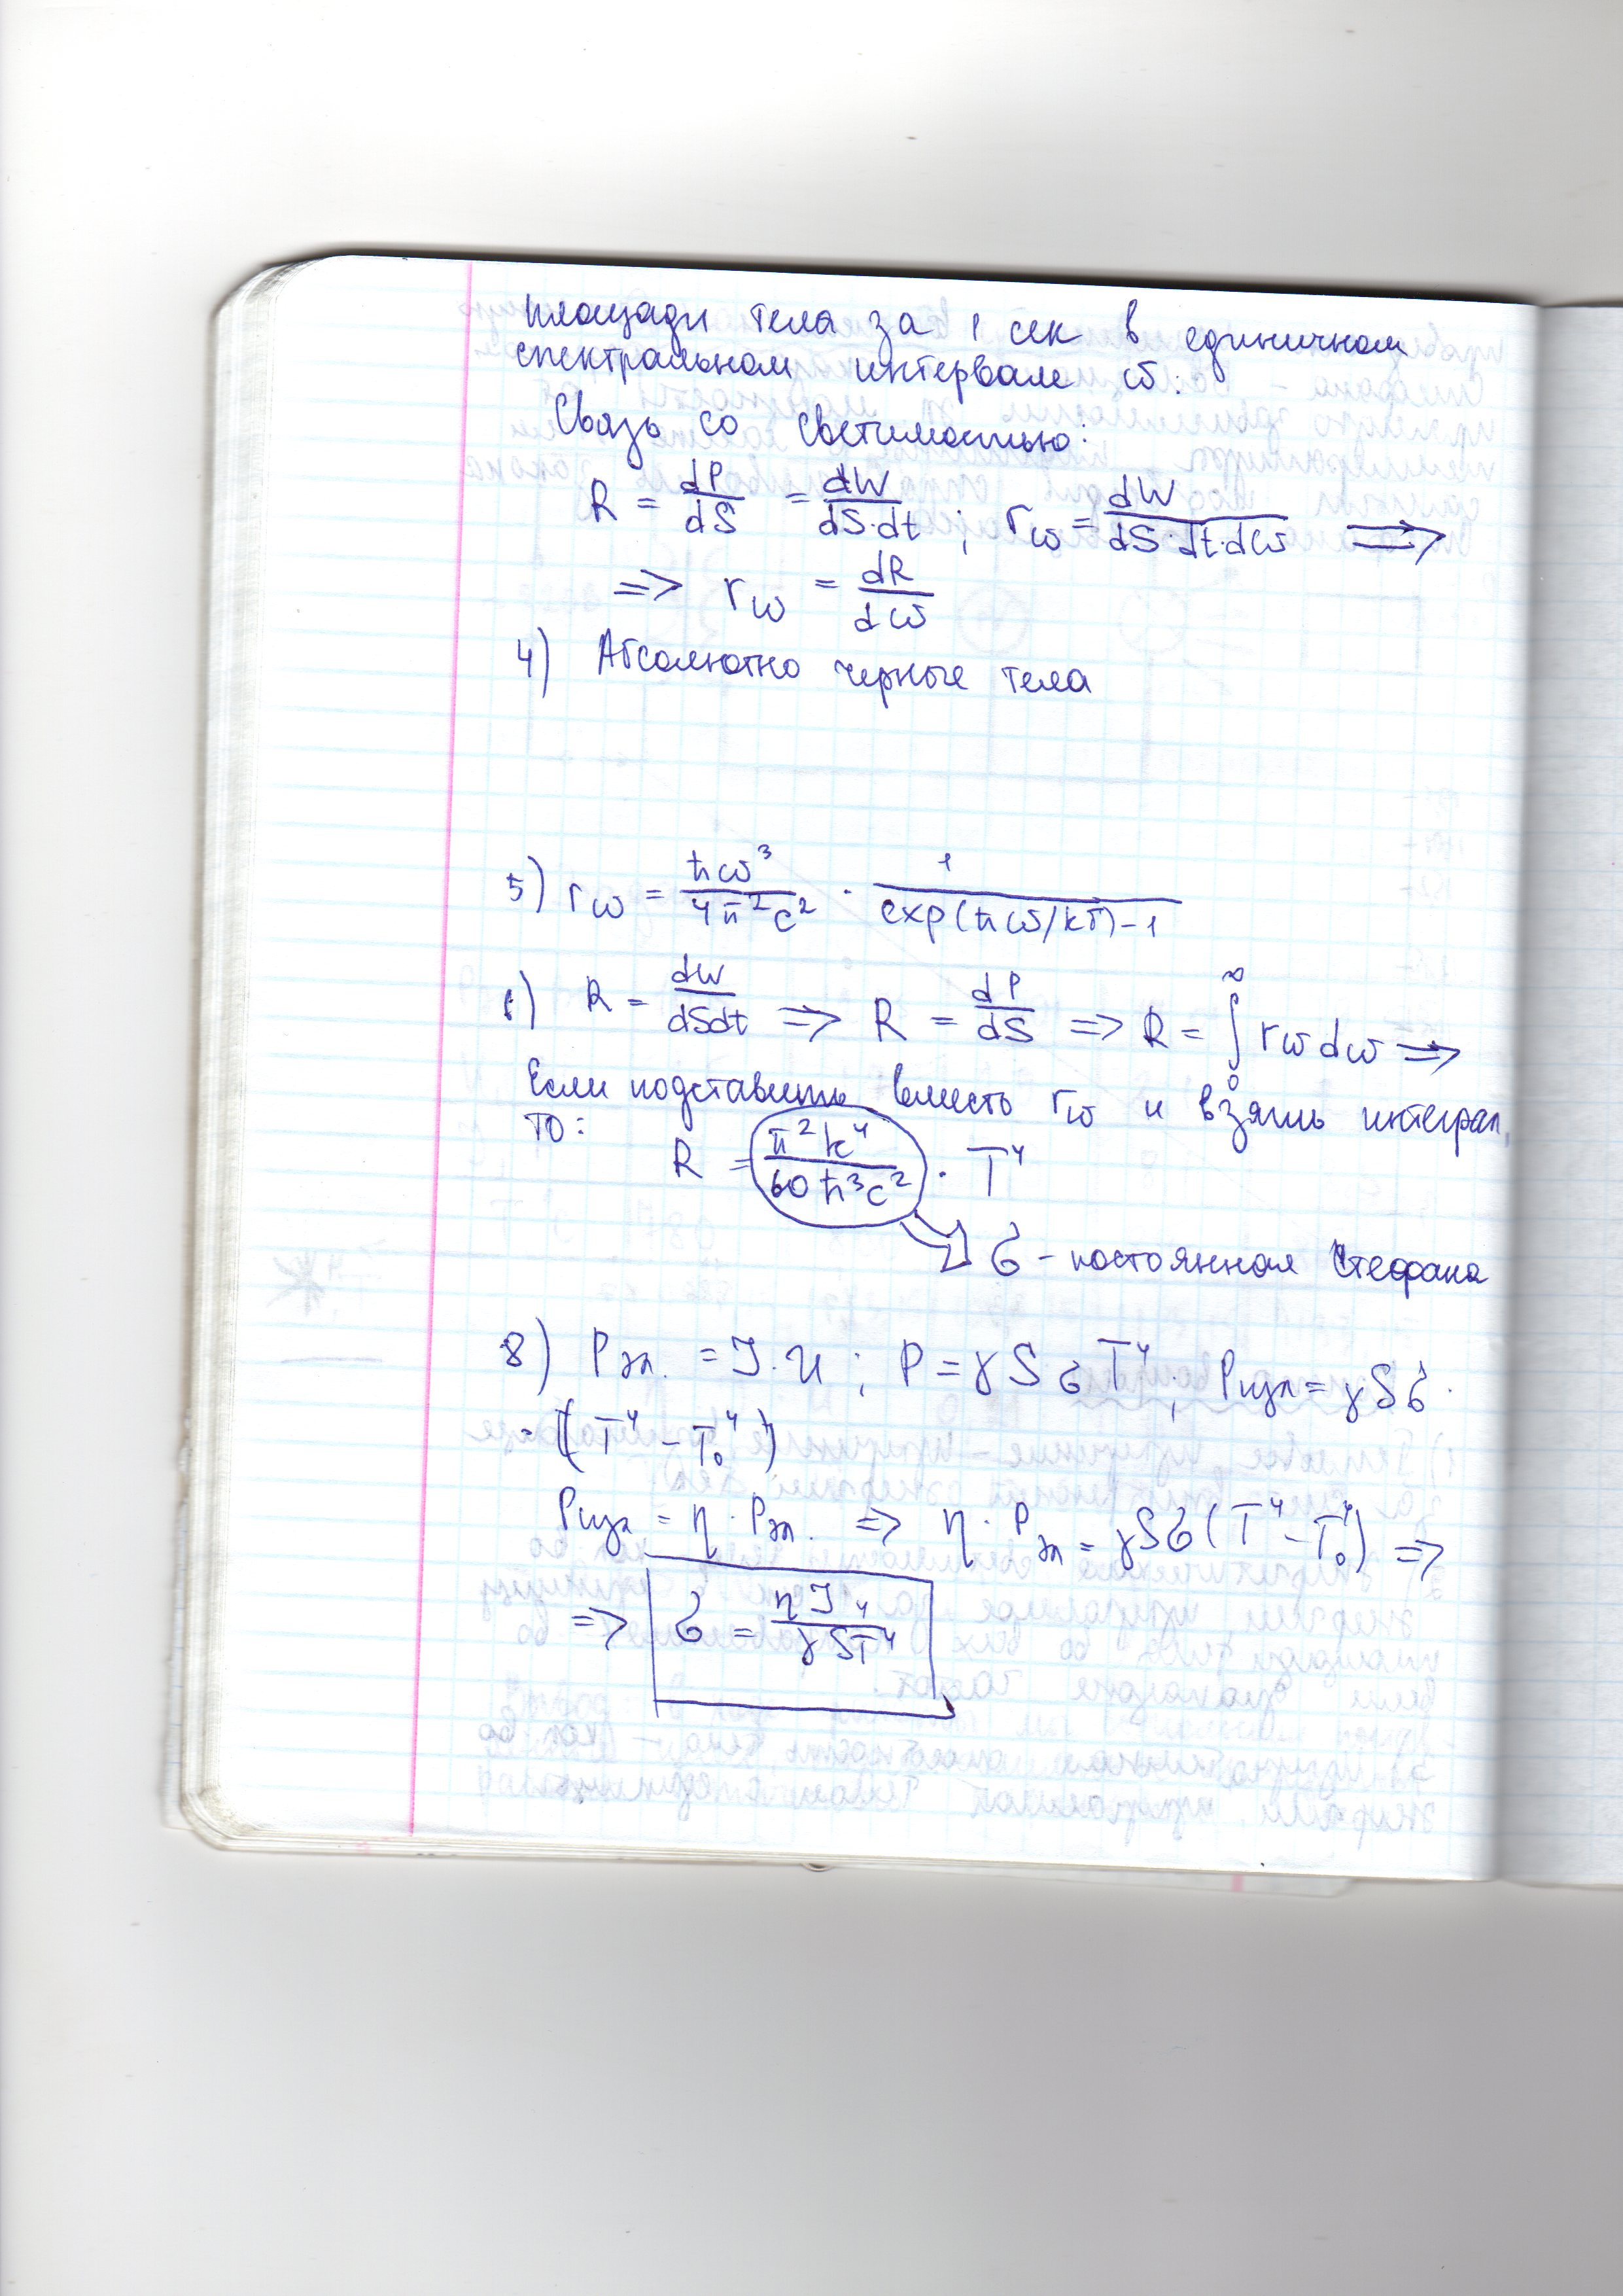 площади тела за 1 сек в единичном
спектральном интервале ω.
Связь со светимостью:
R = dP/dS = dW/dS·dt ; rω = dW/dS·dt·dω =>
=> rω = dR/dω
4) Абсолютно черные тела
5) rω = ħω³/4π²c² · 1/exp(ħω/kT)-1
6) R = dW/dSdt => R = dP/dS => R = ∫₀^∞ rω dω =>
Если подставить вместь rω и взять интеграл,
то:
R = π²k⁴/60ħ³c² · T⁴
σ - постоянная Стефана
8) Pэл. = J·U ; P = γSσT⁴ ; Pизл = γSσ·
·(T⁴ - T₀⁴)
Pизл = η·Pэл. => η·Pэл = γSσ(T⁴ - T₀⁴) =>
=> σ = ηJU/γST⁴